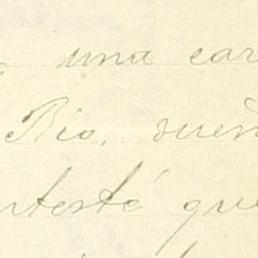 una car
Rio, sueñ
ntesté que